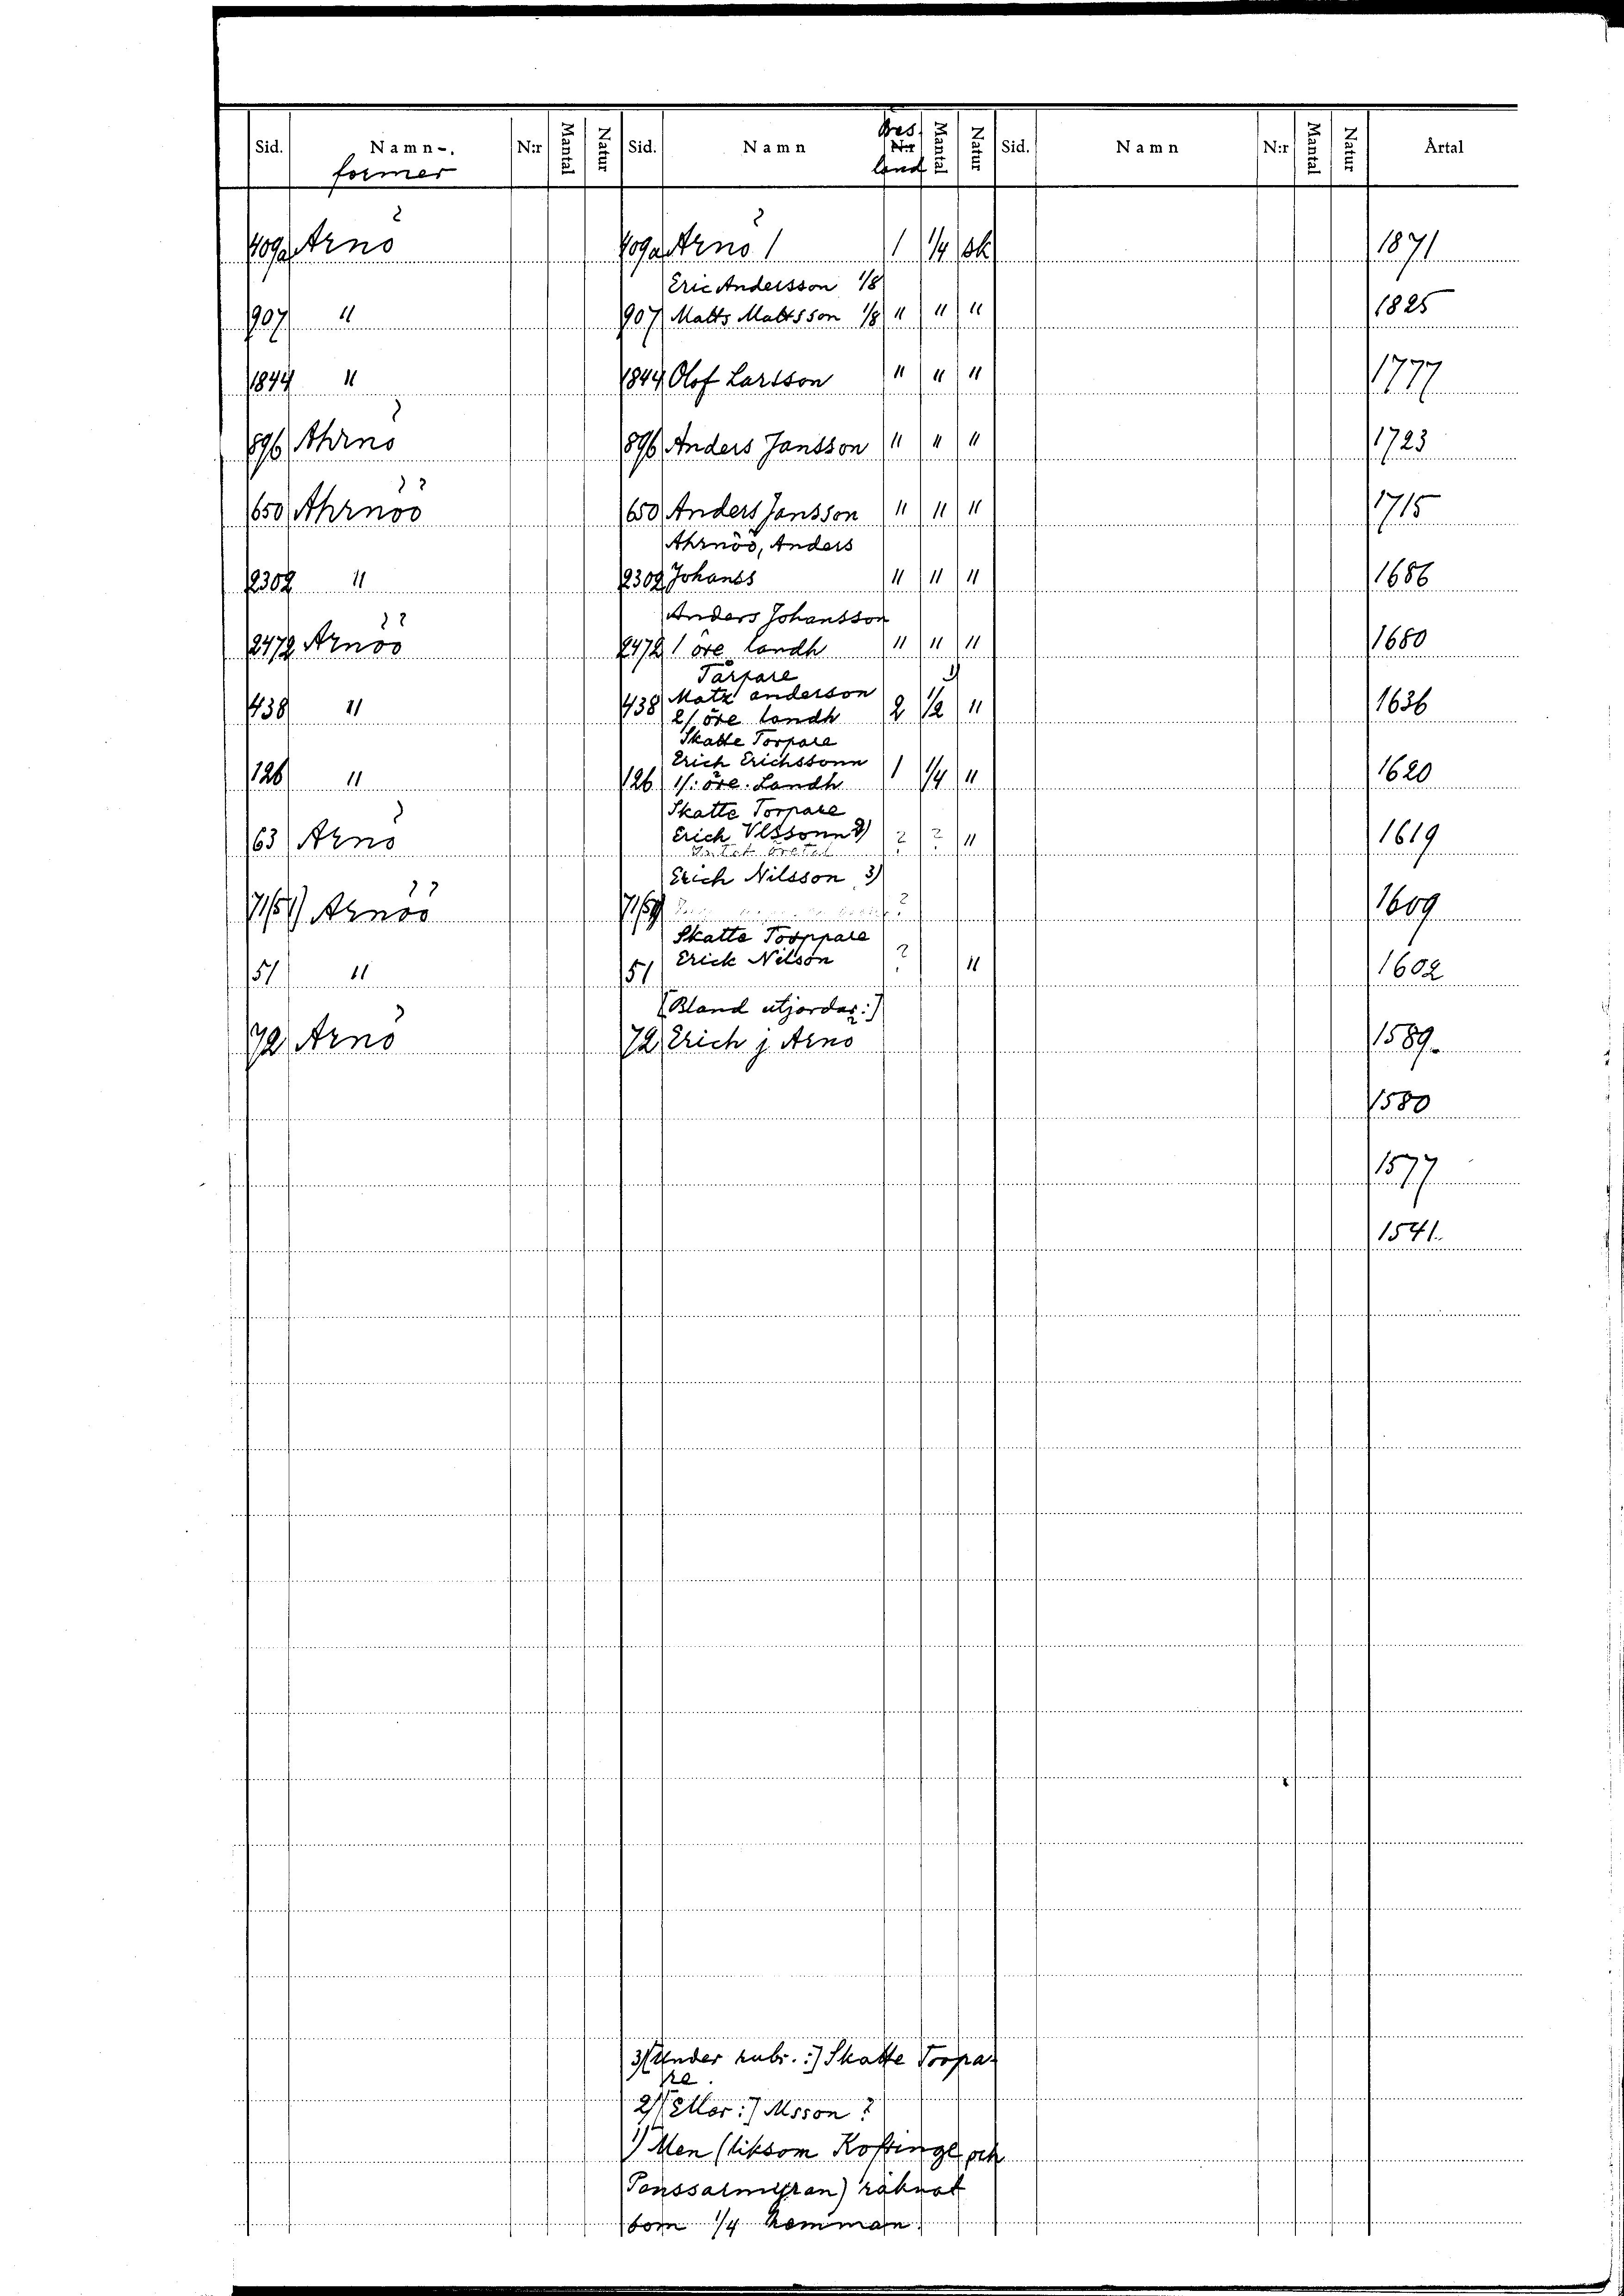 Sid. Namn- N:r Mantal Natur Sid. Namn Öres N:r land Mantal Natur Sid. Namn N:r Mantal Natur Årtal
former
409a Arnö 409a Arnö 1 1 1/4 sk 1871
Eric Andersson 1/8
907 " 907 Matts Mattsson 1/8 " " " 1825
1844 " 1844 Olof Larsson " " " 1777
896 Ahrnö 896 Anders Jansson " " " 1723
650 Ahrnöö 650 Anders Jansson " " " 1715
Ahrnöö, Anders
2302 " 2302 Johanss " " " 1686
Anders Johansson
2472 Arnöö 2472 1 öre landh " " " 1680
Tårpare
438 " 438 Matz anderson 2 1/2 1) " 1636
2/ öre landh
Skatte Torpare
Erich Erichssonn
126 " 126 1/: öre. Landh 1 1/4 " 1620
Skatte Torpare
63 Arnö Erich Vlssonn 2) ? ? " 1619
Erich Nilsson 3)
71(51) Arnöö 71(51) ? 1609
Skatte Torppare
51 " 51 Erick Nilson ? " 1602
(Bland utjordar:)
72 Arnö 72 Erich j Arnö 1589.
1580
1577
1541.
3) (Under rubr. :) Skatte Torpa-
re.
2) (eller :) Msson ?
1) Men (liksom och
räknat
som 1/4